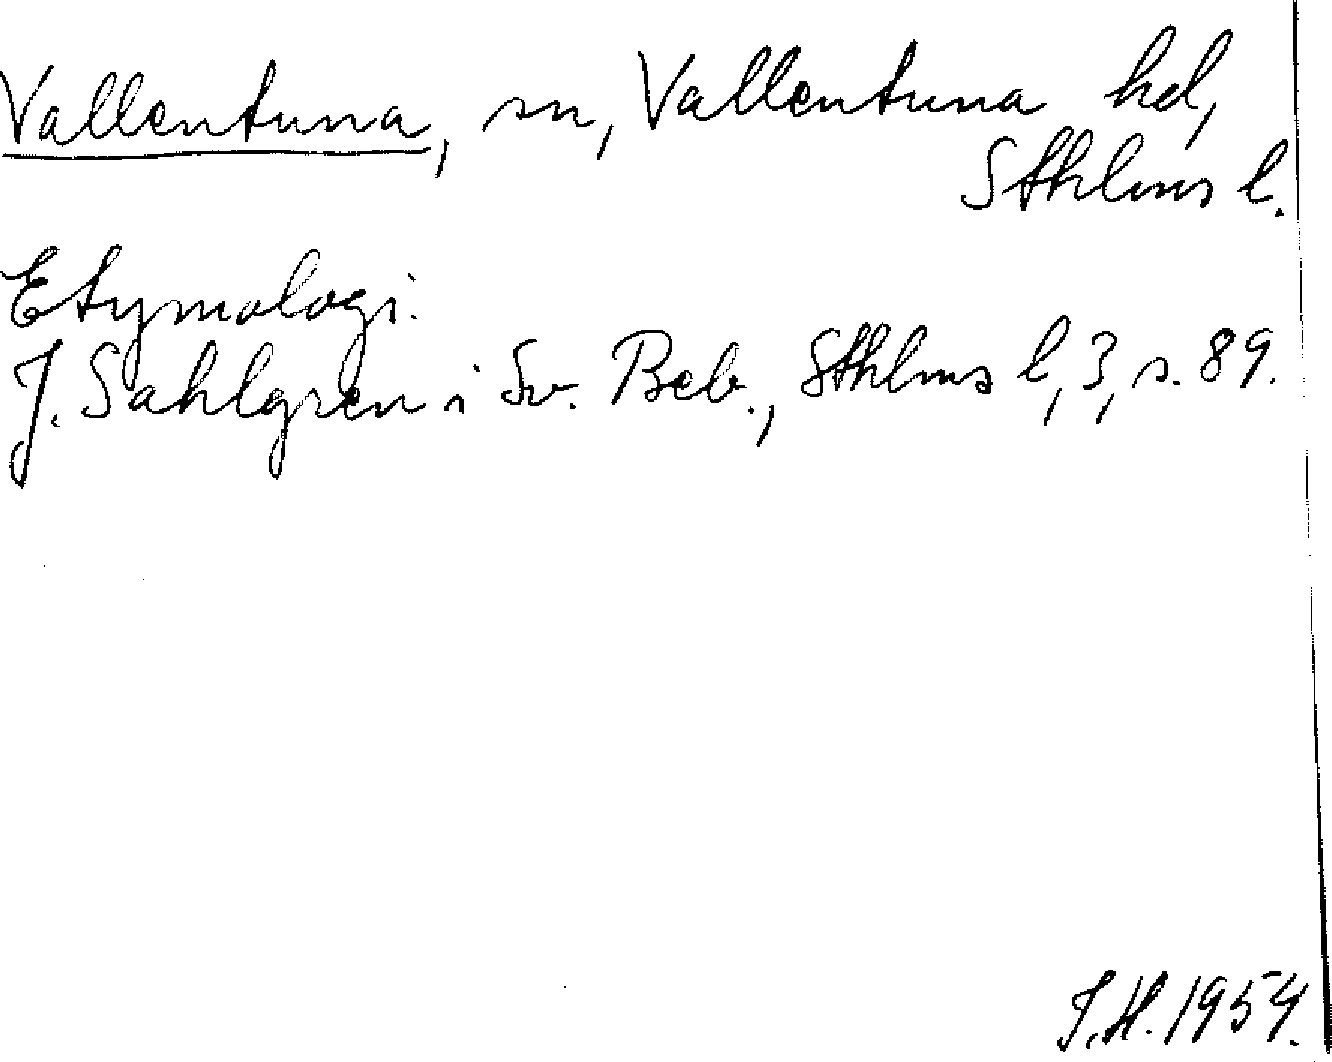 Vallentuna, sn, Vallentuna hd,
Sthlms l.
Etymologi.
J. Sahlgren i Sv. Beb., Sthlms l, 3, s. 89.
J.H. 1954.